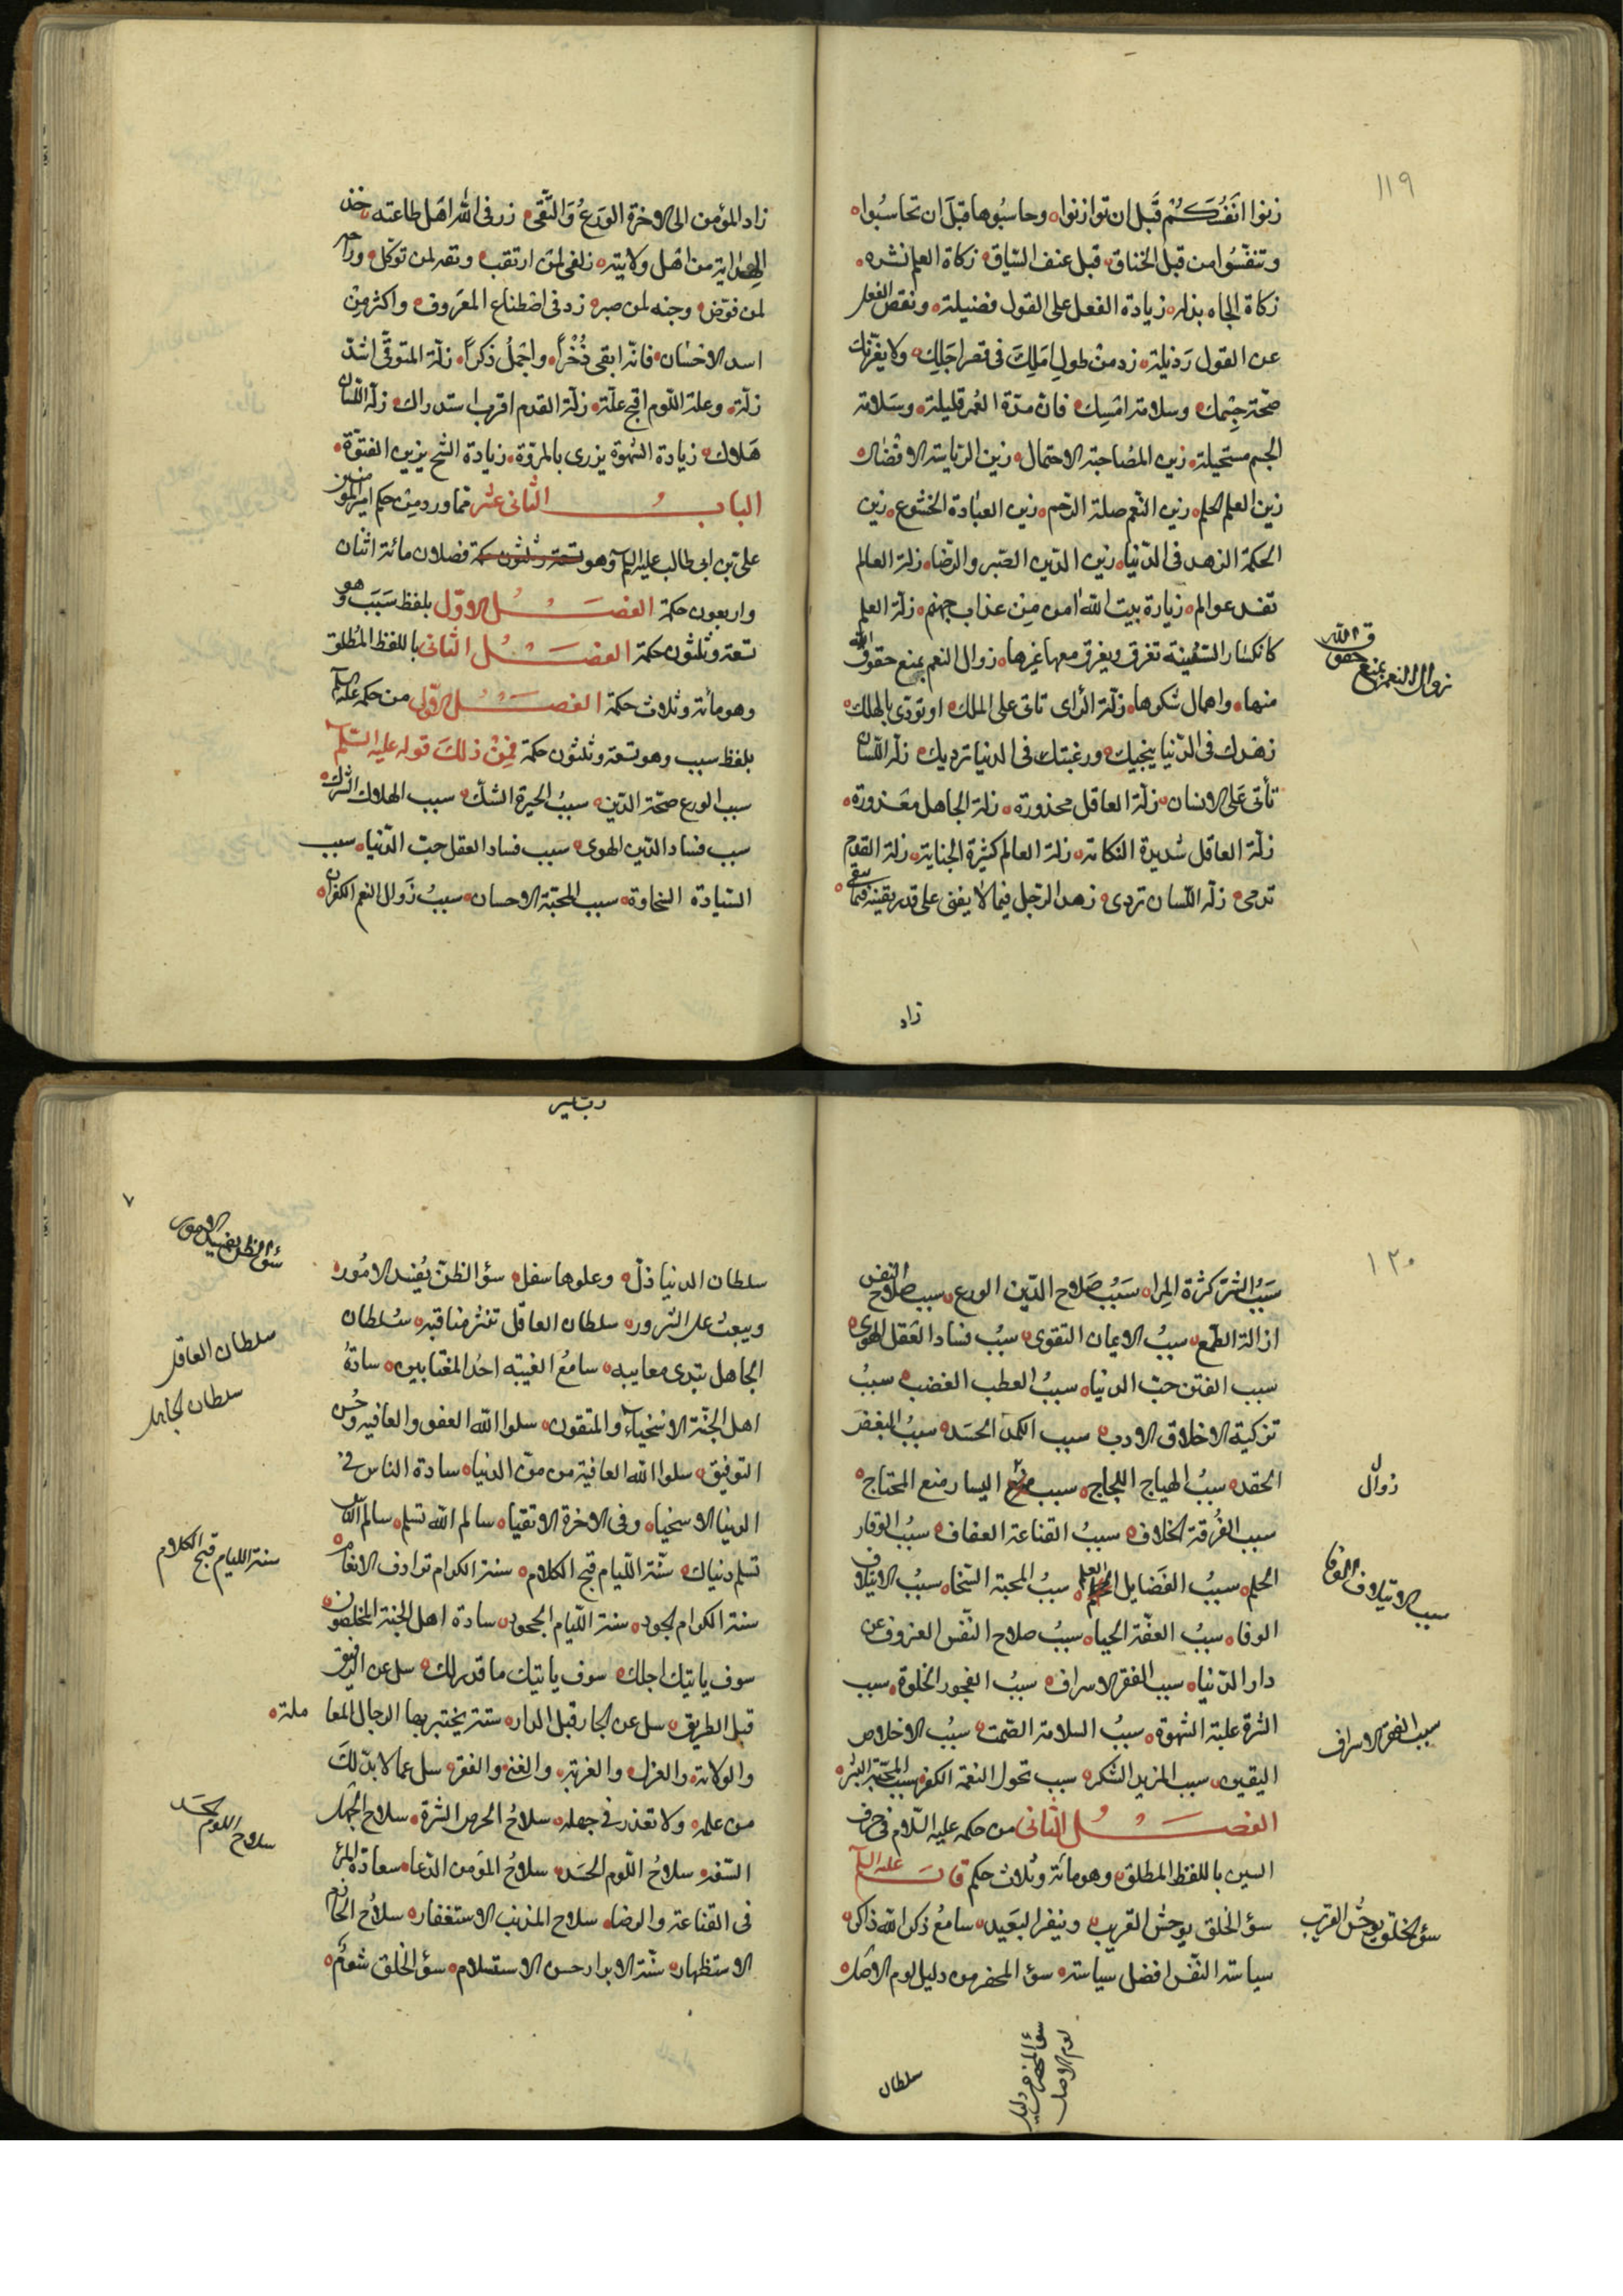 ١١٩
زنوا انفسكم قبل ان توازنوا وحاسبوها قبل ان تحاسبوا
وتنفسوا من قبل الخناق قبل عنف السّياق زكاة العلم نشره
زكاة الجاه بذله زيادة الفعل على القول فضيلة ونقص الفعل
عن القول رَذيلة زد من طولِ املِكَ فى قصر اجلِك ولا يغرّنك
صحّة جِسْمك وسلامة امسِك فانّ مدّة العُمر قليلة وسَلامة
الجسم مستحيلة زين المصُاحبة الاحتمال زين الرّياسة الافضال
زين العلم الحلم زين النّعم صلة الرّحم زين العبادة الخشوع زين
الحكمة الزهد فى الدّنيا زين الدّين الصّبر والرّضا زلّة العالم
تفسد عوالم زيارة بيت اللّه امن مِن عذاب جهنم زلّة العلم
كانكسار السّفينة تغرق ويغرق معها غيرها زوال النعم بمنع حقوق اللّه
زوال النعم بمنع حقوق اللّه
منها واهمال شكرها زلّة الرّاى تاتى على الملك او تودّى بالهلك
زهدك فى الدّنيا ينجيك ورغبتك فى الدنيا ترديك زلّة اللّسان
تأتى عَلى الانسان زلّة العاقل محذورة زلة الجاهل معذورة
زلّة العاقل شديدة النكاتة زلة العالم كثيرة الجناية زلة القدم
تدمى زلّة اللّسان تردى زهد الرّجل فيما لا يفنى على قدر يقينه فيما يبقى
زاد
زاد المؤمن الى الاخرة الورَعُ وَالتّقى زر فى اللّه اهَل طاعته خذ
الهداية من اهْل ولايته زلفى لمن ارتقب وثقة لمن توكّل وراحة
لمن فوّض وجنه لمن صبر زد فى اصْطناع المعَروف واكثر مِنْ
اسد الاحسَان فانّه ابقى ذُخْراً واجْملُ ذكراً زلّة المتوقّى اشدّ
زلّة وعلة اللّوم اقبح علّة زلّة القدم اقرب استدراك زلّة اللّسان
هَلاك زيادة الشّهوة يزرى بالمروّة زيادة الشّح يزين الفتوّة
البابُ الثّانى عشر ممّا ورد من حكم امير المؤمنين
على بن ابى طالب عليه السلم وهو تسعة وثلثون حكمة فصلان مائة اثنان
واربعون حكمة الفصَلُ الاوّل بلفظ سَبَب وهو
تسعة وثلثون حكمة الفصَلُ الثّانى باللفظ المُطلق
وهو مأئة وثلاث حكمة الفصَلُ الاوّلى من حكمه عليه السلم
بلفظ سبب وهو تسعة وثلثون حكمة فمِنْ ذلكَ قوله عليه السّلم
سبب الورع صحّة الدّين سببُ الحيرة الشكّ سبب الهلاك الشّرك
سبب فساد الدّين الهوى سَبب فساد العقل حبّ الدّنيا سبب
السّيادة السّخاوة سبب المحبّة الاحسان سببُ زَوال النعم الكفران
١٢٠
سَبَبُ الشّر كثرة المِراء سَبَبُ صَلاح الدّين الورع سبب صلاح النفس
ازالة الطّمع سببُ الايمان التقوى سبُب فساد العقل الهوى
سبب الفتن حبّ الدنيا سببُ العطب الغضب سببُ
تزكية الاخلاق الادب سبب الكمد الحسَد سببُ البغض
الحقد سببُ الهياج اللجاج سبب زوال اليسار منع المحتاج
زوال
سبب الفُرقة الخلاف سببُ القناعة العفاف سببُ الوقار
الحلم سببُ الفَضايل العلم سببُ المحبة السّخا سببُ الايتلاف
سبب الايتلاف الوفا
الوفا سببُ العفّة الحيا سببُ صلاح النّفس العزوف عن
دار الدّنيا سبب الفقر الاسراف سببُ الفجور الخلوة سبب
الشّرة غلبة الشهوة سببُ السلامة الصّمت سببُ الاخلاص
سبب الفقر الاسراف
اليقين سبب المزيد الشكر سبب تحول النعمة الكفر سبب المحبّة البشر
الفصَلُ الثّانى من حكمه عليه السّلام فى حرف
السين باللفظ المطلق وهو مائة وثلاث حكم قال عليه السلم
سؤ الخلق يوحش القريب وينفر البَعيد سامعُ ذكر اللّه ذاكر
سؤ الخلق يوحش القريب
سياسة النّفس افضل سياسة سؤ المحضر من دليل لوم الاصل
سؤ المحضر من دليل
لوم الاصل
سلطان
٧
سلطان الدنيا ذلّ وعلوها سفل سؤ الظنّ يُفسد الامُور
سؤ الظن يفسد الامور
ويبعث على الشّرور سلطان العاقل تنثر مناقبه سُلطان
سلطان العاقل
الجاهل يبدى معايبه سامعُ الغيبه احدُ المغتابين سادةُ
سلطان الجاهل
اهل الجنّة الاسْخياء والمتقون سلوا اللّه العفو والعافيه وحُسن
التوفيق سلوا اللّه العافية من موّن الدنيا سادة الناس فى
الدنيا الاسخيا وفى الاخرة الاتقيا سالم اللّه تسلم سالم النّاس
تسلم دنياك سنّة اللّيام قبح الكلام سنة الكرام ترادف الانعام
سنة الليام قبح الكلام
سنة الكرام الجود سنة اللّيام الجحود سادة اهل الجنة المخلصون
سوف ياتيك اجلك سوف ياتيك ما قدر لك سل عن الرفيق
قبل الطريق سل عن الجار قبل الدار ستة يختبر بها الرجال المعا ملة
والولاية والعزل والغربة والغنى والفقر سل عما لا بدّ لكَ
من علمه ولا تعذر فى جهله سلاحُ الحرص الشرة سلاح الجَهل
السّفه سلاحُ اللّوم الحسَد سلاحُ المؤمن الدّعا سعادة المرء
سلاح اللّوم الحسَد
فى القناعة والرضا سلاح المذنب الاستغفار سلاحُ الحازم
الاستظهار سنّة الابرار حسن الاستسلام سؤ الخلق شؤم